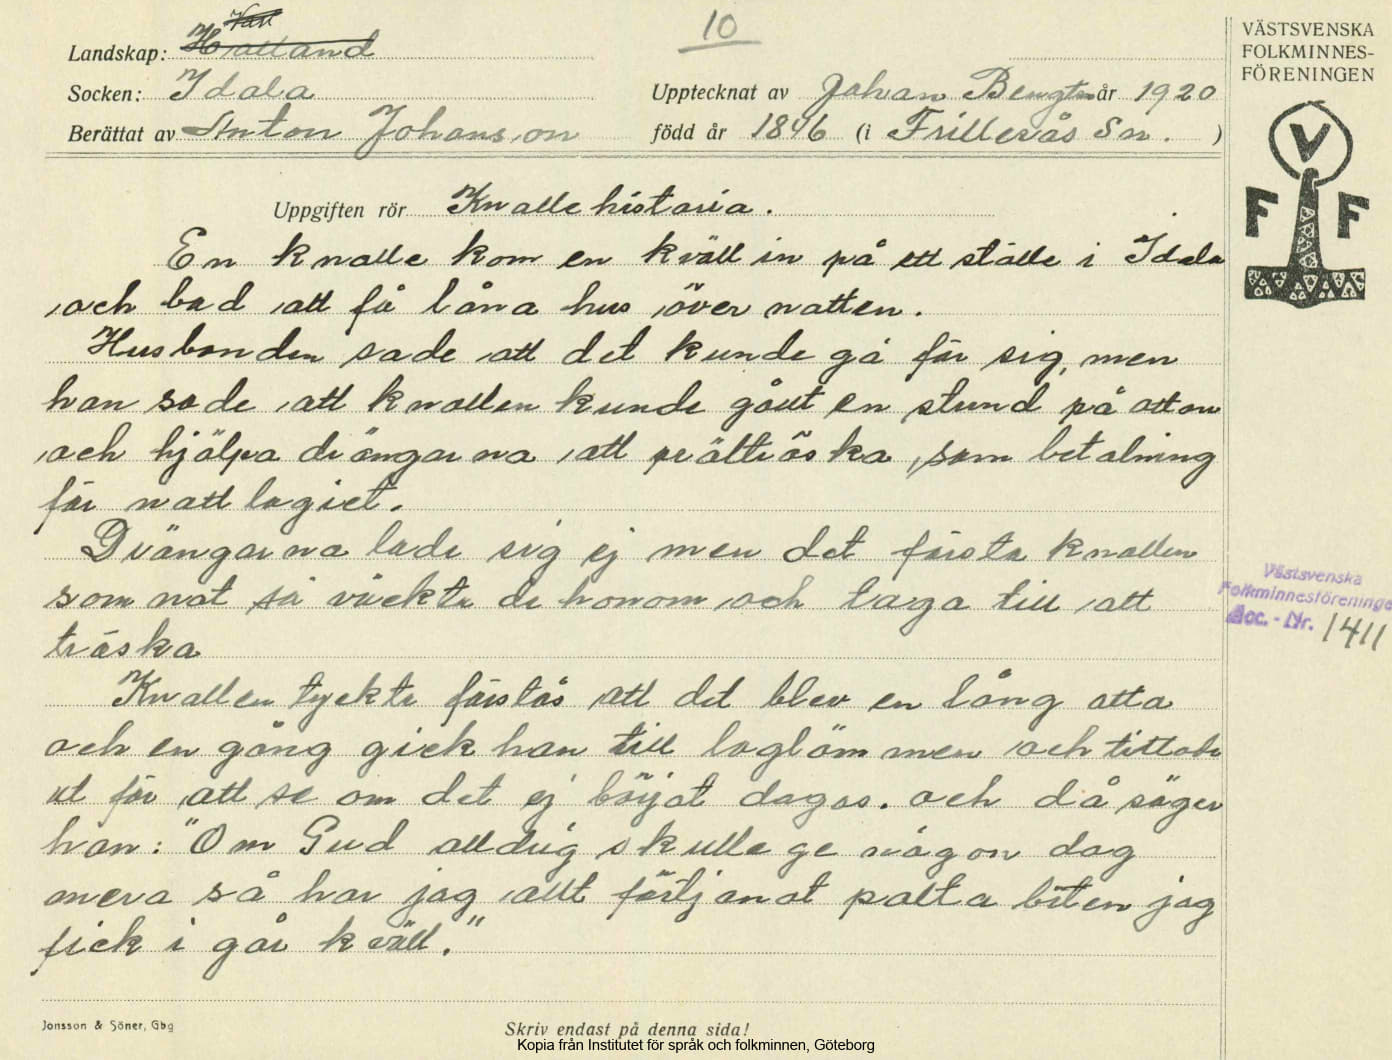 10
Landskap: Halland
Socken: Idala
Upptecknat av Johan Bengtson år 1920
Berättat av Anton Johansson
född år 1846 (i Frillesås Sn. )
VÄSTSVENSKA
FOLKMINNES-
FÖRENINGEN
V
F F
Uppgiften rör Knallehistoria.
En knalle kom en kväll in på ett ställe i Idala
och bad att få låna hus över natten.
Husbonden sade att det kunde gå för sig, men
han sade att knallen kunde gått en stund på ottan
och hjälpa drängarna att tröska, som betalning
för nattlogiet.
Drängarna lade sig ej men det första knallen
somnat så väckte de honom och taga till att
tröska
Knallen tyckte förstås att det blev en lång otta
och en gång gick han till loglömmen och tittade
ut för att se om det ej börjat dagas. och då säger
han: "Om Gud alldrig skulle ge någon dag
mera så har jag allt förtjänat palta biten jag
fick i går kväll."
Västsvenska
Folkminnesföreningen
Acc.-Nr. 1411
Jonsson & Söner, Gbg
Skriv endast på denna sida!
Kopia från Institutet för språk och folkminnen, Göteborg